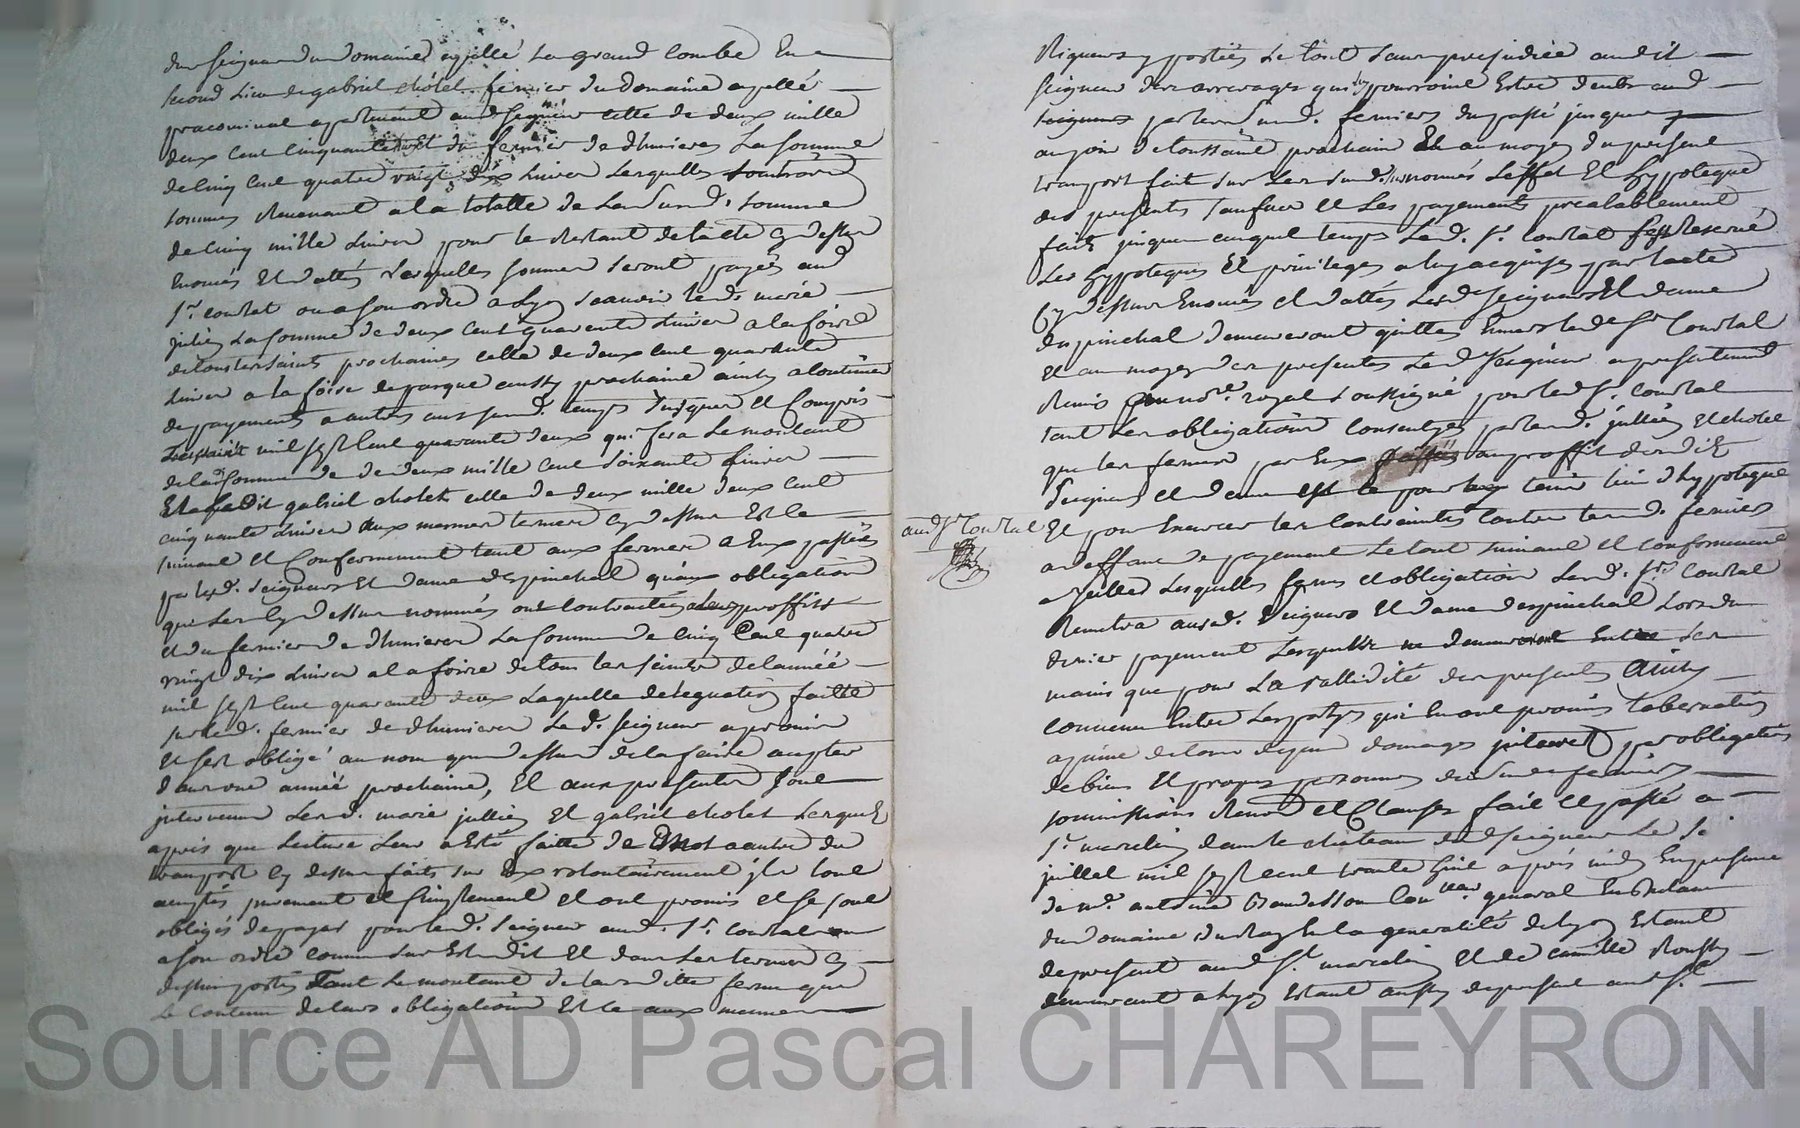 dud seigneur du domaine appellé la grand combe En
second lieu de gabriel cholet fermier du domaine apellé
pracominal apartenant aud seigneur celle de deux mille
deux cent cinquante et du fermier de dhumieres La somme
de cinq cent quatre vingt dix livres Lesquelles
sommes Revenant a la totalle de lad. somme
de cinq mille livres pour le Restant de lacte cy dessus
Enoncés Et dattés Lesquelles sommes seront payés aud
Sr. coudal ou a son ordre a Lyon scauoir led. marie
jullien La somme de deux cent quarente livres a la foire
de toussaints prochaines celle de deux cent quarante
livres a la foire de pasque aussy prochaine ainsy a continuer
de payements a autres aux termes jusques Et Compris
mil sept cent quarante deux qui sera Le montant
de lad somme de deux mille cent soixante livres
Et led. gabriel cholet celle de deux mille deux cent
cinquante livres aux mesmes termes cy dessus Et le
suivant et Conformement tant aux fermes a Eux passées
par lesd. seigneurs Et dame despinchal quaux obligations
que les cy dessus nommés ont Contractées a leurs proffits
et du fermier de dhumieres La somme de cinq Cent quatre
vingt dix livres a la foire de tous les saints de lannée
mil sept cent quarante deux Laquelle delegation faitte
sur led. fermier de dhumieres Led. seigneur a promis
et sest obligé au nom que dessus de la faire accepter
dans une année prochaine, Et aux presentes Sont
intervenus Lesd. marie jullien Et gabriel cholet Lesquels
apres que Lecture Leur a Esté faitte de Mot a autre du
transport cy dessus fait sur Eux volontairement ils lont
acceptés purement et simplement et ont promis et se sont
obligés de payer pour led. seigneur aud. Sr. coudal ou
a son ordre comme sus Est dit Et dans Les termes cy
dessus portés Tant Le montant de leurs dittes fermes que
Le contenu de leurs obligations Et le aux mesmes
Rigueurs y portées Le tout sans prejudice audit
seigneur des arrerages qui luy pourroint Estre deubs aud
seigneur par lesd. fermiers du passé jusques
au jour de toussaint prochain Et au moyen du present
transport fait sur les susd. nommés Leffet Et hypoteque
des presents et Les payements prealablement
faits jusques auquel temps Led. Sr. coudal sest Reservé
Les hypoteques Et privileges a luy acquises par lacte
Cy dessus Enoncés et dattés Lesd. Seigneurs Et dame
despinchal demeureront quittes Envers led Sr Coudal
Et au moyen des presentes Led seigneur a presentement
Remis nore. royal soussigné pour led Sr. coudal
tant les obligations consenties par lesd. jullien Et cholet
que les fermes par Eux passées au proffit desdits
Seigneur et dame pour luy tenir lieu dhypoteque
aud Sr Coudal
Et pour Exercer les Contraintes Contre lesd. fermiers
a deffaut de payement Le tout suivant et conformement
a Icelles Lesquelles fermes et obligations Led. Sr. Coudal
Remettra ausd. Seigneurs Et dame despinchal Lors du
dernier payement Lesquelles ne demeureront Entre ses
mains que pour La vallidité des presents Ainsy
convenu Entre Les partyes qui Lont promis
a peine de tous depens domages jnterets par obligation
de biens Et propres personnes desd fermiers
soumissions Renon. et Clauses fait et passé a
St. marcelin dans le chateau dud seigneur Le
juillet mil sept cent trente huit apres midy En presence
de Mr. antoine general
du domaine du Roy En la generalité de Lyon Estant
de present aud St. marcelin Et de camille
demeurant a Lyon Estant aussy de present aud St.
Source AD Pascal CHAREYRON